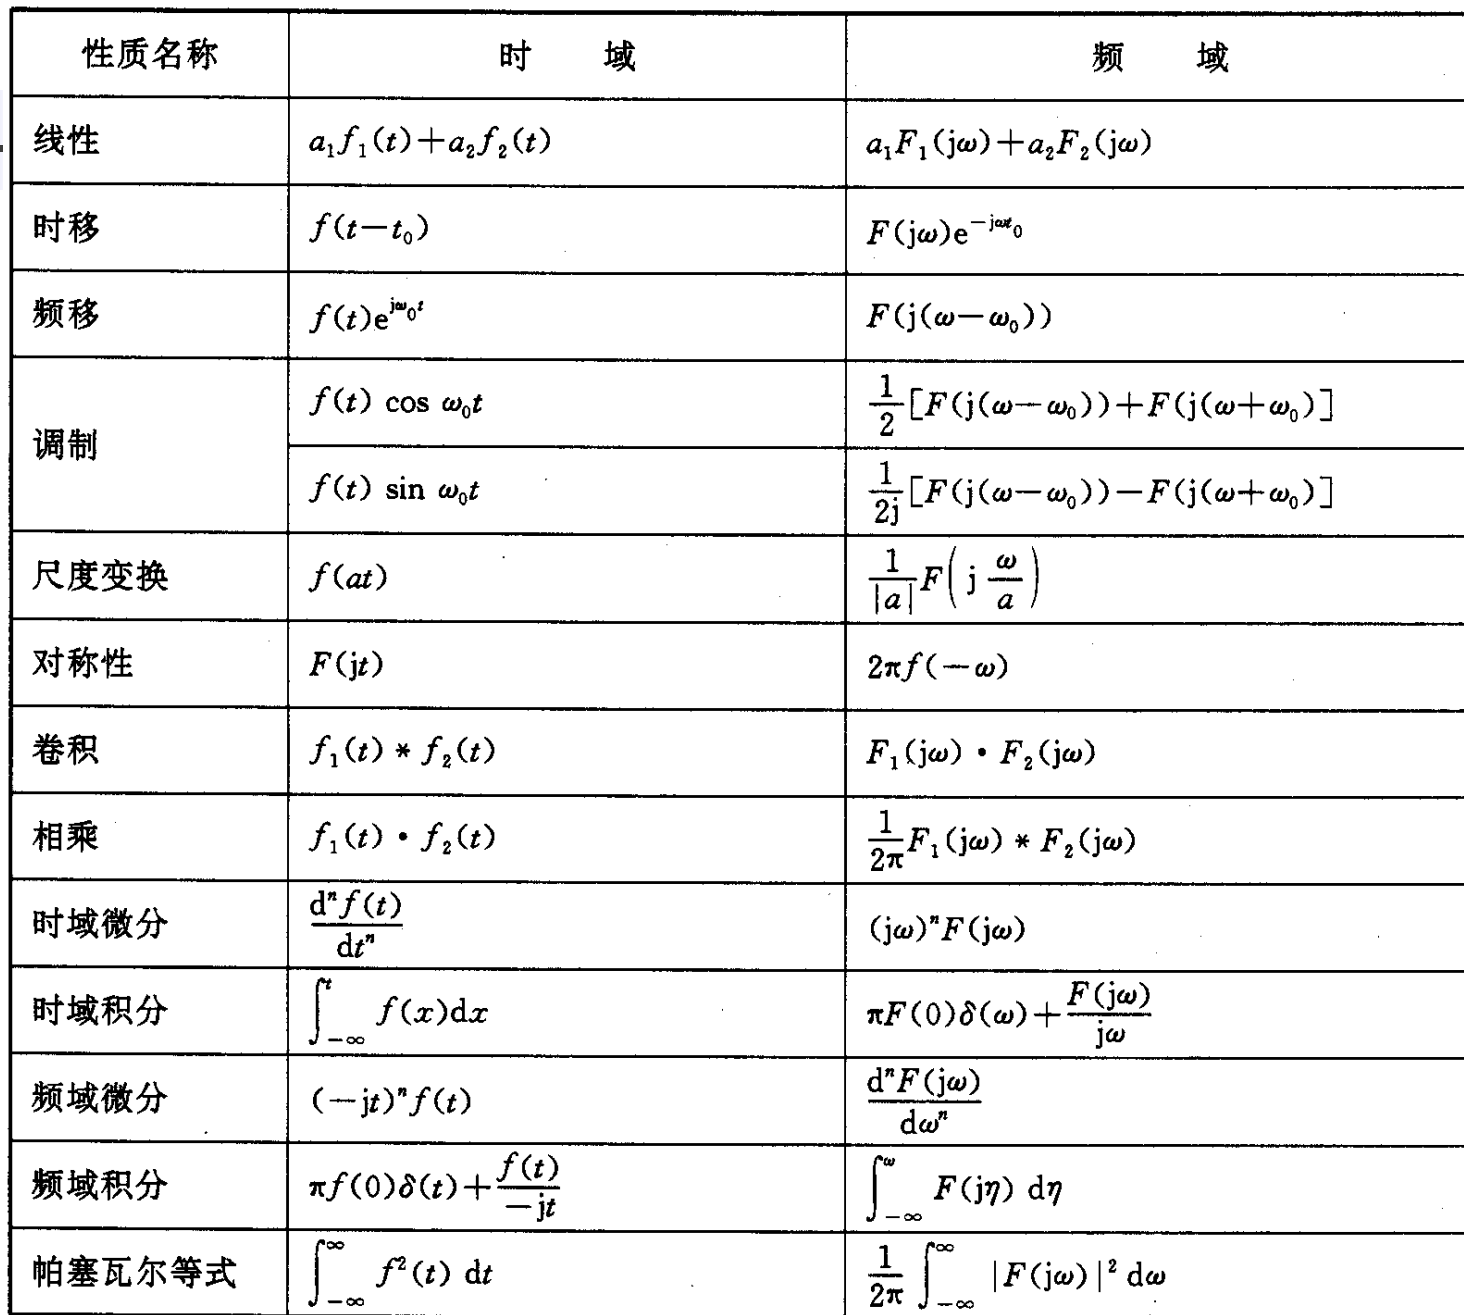 性质名称 时 域 频 域
线性 a₁f₁(t)+a₂f₂(t) a₁F₁(jω)+a₂F₂(jω)
时移 f(t−t₀) F(jω)e^{−jωt₀}
频移 f(t)e^{jω₀t} F(j(ω−ω₀))
调制 f(t) cos ω₀t \frac{1}{2}[F(j(ω−ω₀))+F(j(ω+ω₀)]
f(t) sin ω₀t \frac{1}{2j}[F(j(ω−ω₀))−F(j(ω+ω₀)]
尺度变换 f(at) \frac{1}{|a|}F(j\frac{ω}{a})
对称性 F(jt) 2πf(−ω)
卷积 f₁(t) * f₂(t) F₁(jω)·F₂(jω)
相乘 f₁(t)·f₂(t) \frac{1}{2π}F₁(jω) * F₂(jω)
时域微分 \frac{dⁿf(t)}{dtⁿ} (jω)ⁿF(jω)
时域积分 \int_{−∞}^{t} f(x)dx πF(0)δ(ω)+\frac{F(jω)}{jω}
频域微分 (−jt)ⁿf(t) \frac{dⁿF(jω)}{dωⁿ}
频域积分 πf(0)δ(t)+\frac{f(t)}{−jt} \int_{−∞}^{ω} F(jη) dη
帕塞瓦尔等式 \int_{−∞}^{∞} f²(t) dt \frac{1}{2π}\int_{−∞}^{∞} |F(jω)|² dω